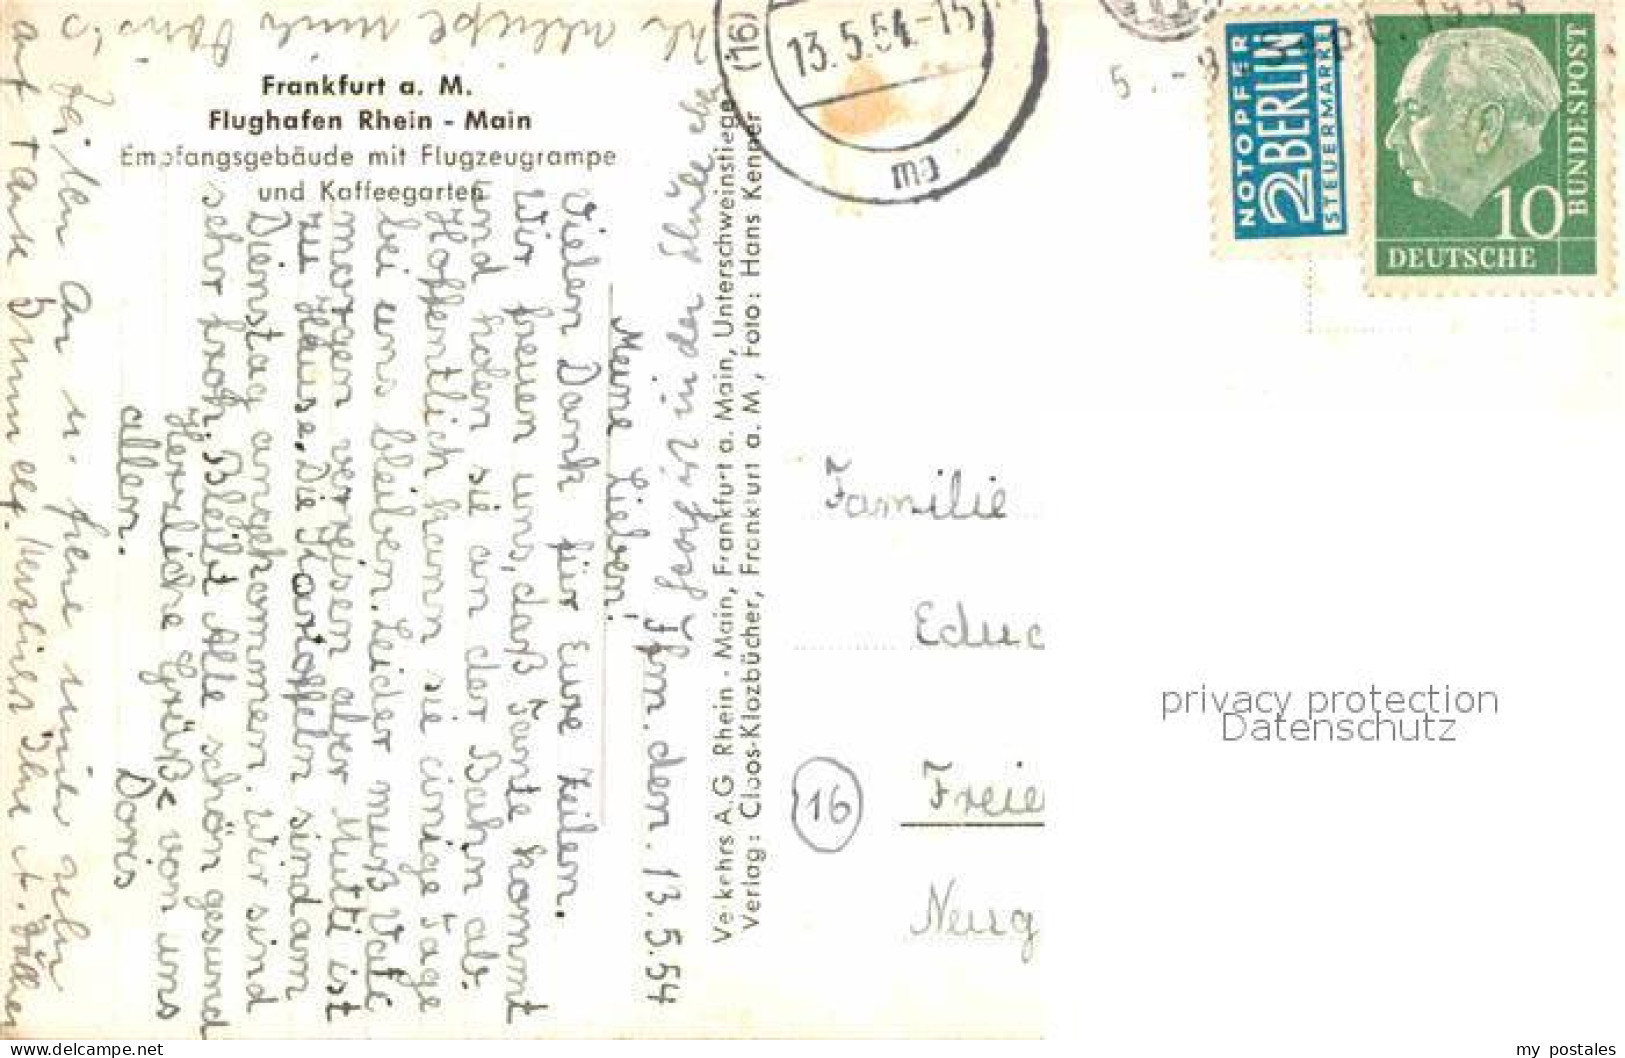 Frankfurt a. M.
Flughafen Rhein - Main
Empfangsgebäude mit Flugzeugrampe
und Kaffeegarten
Ffm. den. 13.5.54
Meine Lieben!
Vielen Dank für Eure Zeilen.
Wir freuen uns, daß Tante kommt
und holen sie an der Bahn ab.
Hoffentlich kann sie einige Tage
bei uns bleiben. Leider muß Vati
morgen verreisen aber Mutti ist
zu Hause. Die Kartoffeln sind am
Dienstag angekommen. Wir sind
sehr froh. Bleibt Alle schön gesund
Herzliche Grüße von uns
allen.
Doris
Georg ist in der Schule
Zeilen an u. freue mich sehr
auf Tante
Verkehrs A.G. Rhein - Main, Frankfurt a. Main, Unterschweinstiege
Verlag: Cloos-Klozbücher, Frankfurt a. M., Foto: Hans Kenner
(16)
13.5.54.-15
ma
5.-8. Sept. 1954
NOTOPFER
2 BERLIN
STEUERMARKE
10
DEUTSCHE
BUNDESPOST
Familie
Freie
16
privacy protection
Datenschutz
my postales
www.delcampe.net